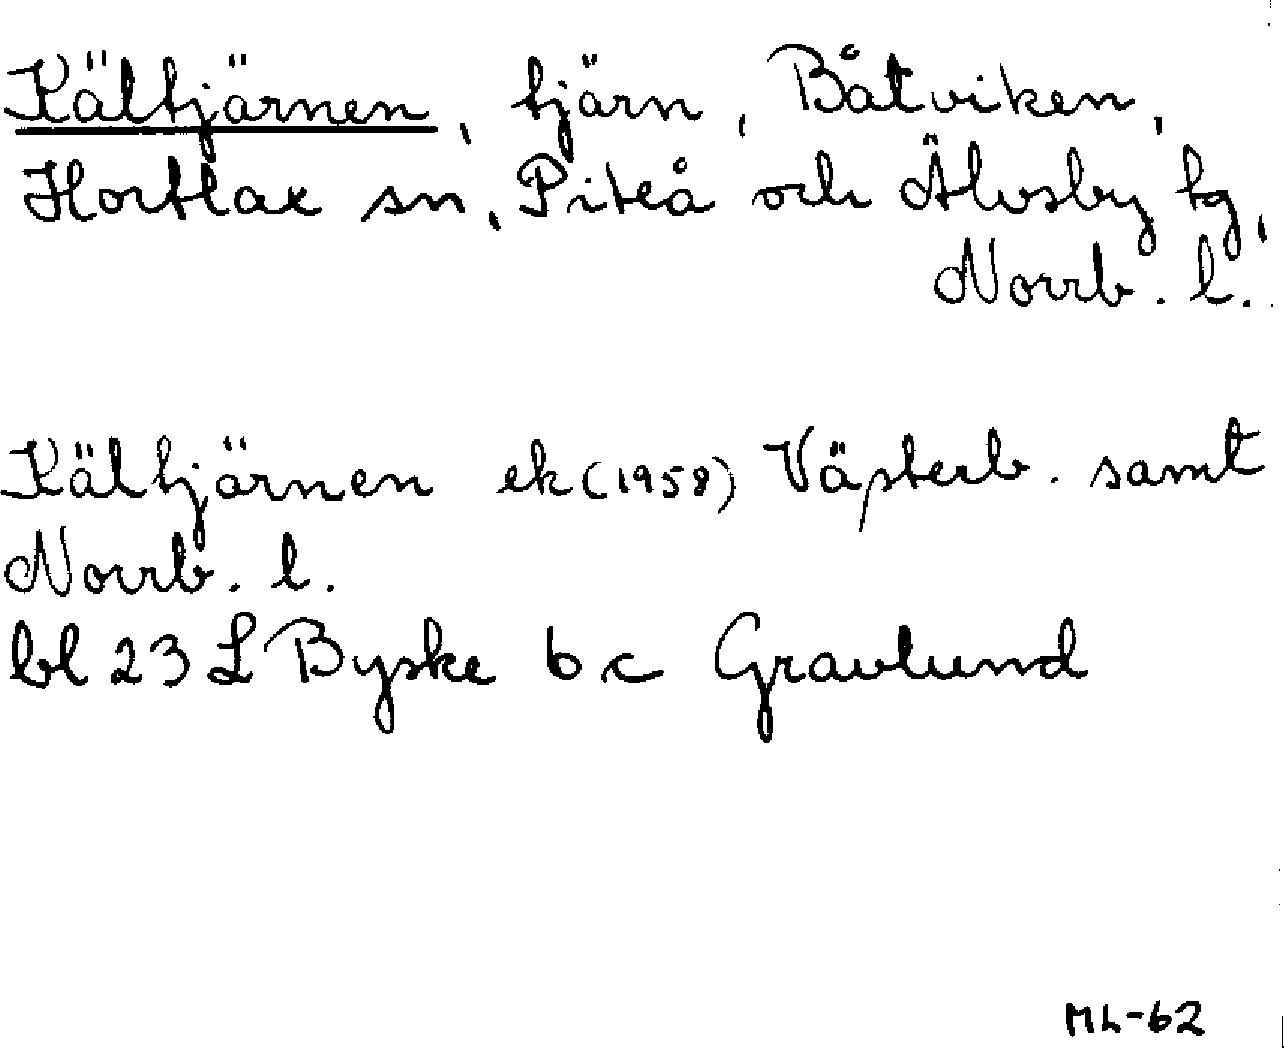 Kältjärnen, tjärn, Båtviken,
Hortlax sn, Piteå och Älvsby tg,
Norrb. l.
Kältjärnen ek (1958) Västerb. samt
Norrb. l.
bl 23 L Byske b c Gravlund
ML-62